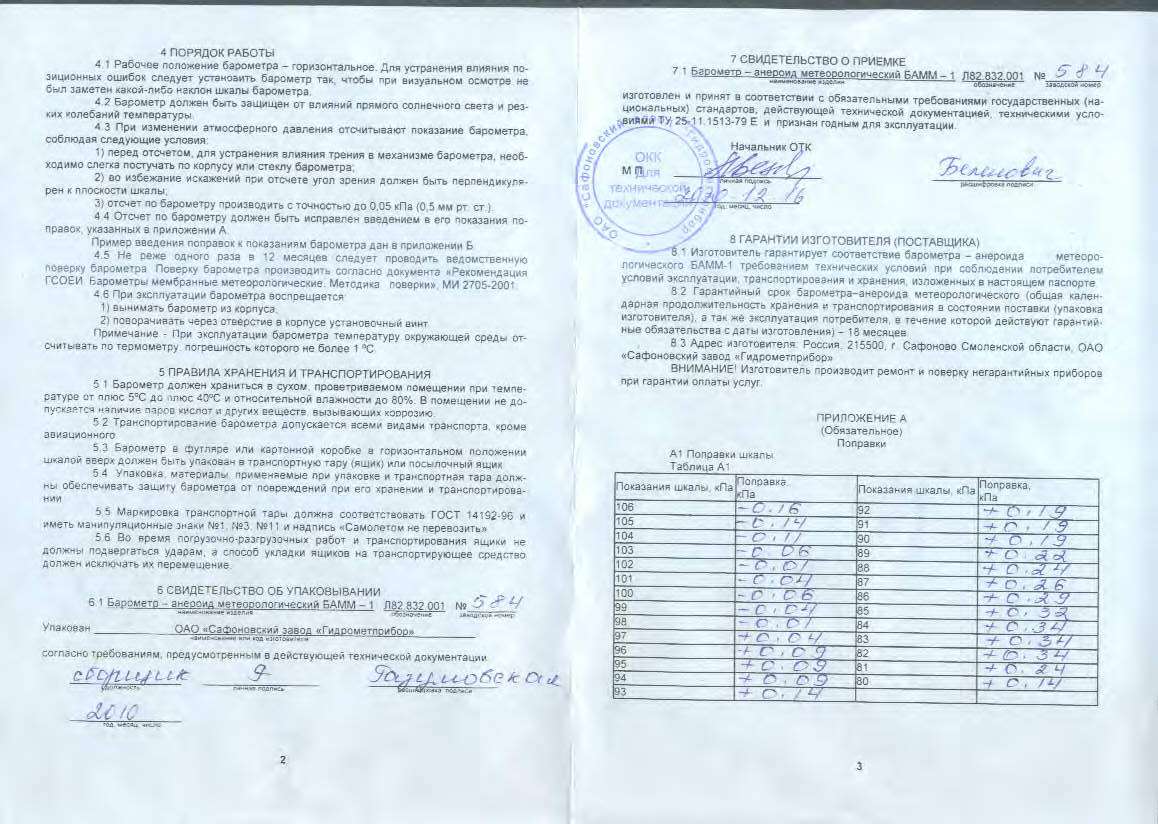 4 ПОРЯДОК РАБОТЫ
4.1 Рабочее положение барометра – горизонтальное. Для устранения влияния по-
зиционных ошибок следует установить барометр так, чтобы при визуальном осмотре не
был заметен какой-либо наклон шкалы барометра.
4.2 Барометр должен быть защищен от влияний прямого солнечного света и рез-
ких колебаний температуры.
4.3 При изменении атмосферного давления отсчитывают показание барометра,
соблюдая следующие условия:
1) перед отсчетом, для устранения влияния трения в механизме барометра, необ-
ходимо слегка постучать по корпусу или стеклу барометра;
2) во избежание искажений при отсчете угол зрения должен быть перпендикуля-
рен к плоскости шкалы;
3) отсчет по барометру производить с точностью до 0,05 кПа (0,5 мм рт. ст.).
4.4 Отсчет по барометру должен быть исправлен введением в его показания по-
правок, указанных в приложении А.
Пример введения поправок к показаниям барометра дан в приложении Б
4.5 Не реже одного раза в 12 месяцев следует проводить ведомственную
поверку барометра. Поверку барометра производить согласно документа «Рекомендация
ГСОЕИ. Барометры мембранные метеорологические. Методика поверки», МИ 2705-2001.
4.6 При эксплуатации барометра воспрещается:
1) вынимать барометр из корпуса;
2) поворачивать через отверстие в корпусе установочный винт.
Примечание - При эксплуатации барометра температуру окружающей среды от-
считывать по термометру, погрешность которого не более 1 ºС.
5 ПРАВИЛА ХРАНЕНИЯ И ТРАНСПОРТИРОВАНИЯ
5.1 Барометр должен храниться в сухом, проветриваемом помещении при темпе-
ратуре от плюс 5ºС до плюс 40ºС и относительной влажности до 80%. В помещении не до-
пускается наличие паров кислот и других веществ, вызывающих коррозию.
5.2 Транспортирование барометра допускается всеми видами транспорта, кроме
авиационного
5.3 Барометр в футляре или картонной коробке в горизонтальном положении
шкалой вверх должен быть упакован в транспортную тару (ящик) или посылочный ящик
5.4 Упаковка, материалы, применяемые при упаковке и транспортная тара долж-
ны обеспечивать защиту барометра от повреждений при его хранении и транспортирова-
нии
5.5 Маркировка транспортной тары должна соответствовать ГОСТ 14192-96 и
иметь манипуляционные знаки №1, №3, №11 и надпись «Самолетом не перевозить»
5.6 Во время погрузочно-разгрузочных работ и транспортирования ящики не
должны подвергаться ударам, а способ укладки ящиков на транспортирующее средство
должен исключать их перемещение.
6 СВИДЕТЕЛЬСТВО ОБ УПАКОВЫВАНИИ
6.1 Барометр – анероид метеорологический БАММ – 1 Л82.832.001 № 584
наименование изделия обозначение заводской номер
Упакован ОАО «Сафоновский завод «Гидрометприбор»
наименование или код изготовителя
согласно требованиям, предусмотренным в действующей технической документации
сборщик
должность личная подпись расшифровка подписи
2010
год, месяц, число
2
7 СВИДЕТЕЛЬСТВО О ПРИЕМКЕ
7.1 Барометр – анероид метеорологический БАММ – 1 Л82.832.001 № 584
наименование изделия обозначение заводской номер
изготовлен и принят в соответствии с обязательными требованиями государственных (на-
циональных) стандартов, действующей технической документацией, техническими усло-
виями ТУ 25-11.1513-79 Е и признан годным для эксплуатации.
Начальник ОТК
М П
личная подпись расшифровка подписи
2010 12 16
год, месяц, число
ОАО «Сафоновский
ОКК
Для
технической
документации
8 ГАРАНТИИ ИЗГОТОВИТЕЛЯ (ПОСТАВЩИКА)
8.1 Изготовитель гарантирует соответствие барометра – анероида метеоро-
логического БАММ-1 требованием технических условий при соблюдении потребителем
условий эксплуатации, транспортирования и хранения, изложенных в настоящем паспорте.
8.2 Гарантийный срок барометра–анероида метеорологического (общая кален-
дарная продолжительность хранения и транспортирования в состоянии поставки (упаковка
изготовителя), а так же эксплуатация потребителя, в течение которой действуют гарантий-
ные обязательства с даты изготовления) – 18 месяцев.
8.3 Адрес изготовителя: Россия, 215500, г. Сафоново Смоленской области, ОАО
«Сафоновский завод «Гидрометприбор»
ВНИМАНИЕ! Изготовитель производит ремонт и поверку негарантийных приборов
при гарантии оплаты услуг.
ПРИЛОЖЕНИЕ А
(Обязательное)
Поправки
А1 Поправки шкалы
Таблица А1
Показания шкалы, кПа Поправка, кПа Показания шкалы, кПа Поправка, кПа
106 –0.16 92 +0.19
105 –0.14 91 +0.19
104 –0.11 90 +0.19
103 –0.06 89 +0.22
102 –0.01 88 +0.24
101 –0.04 87 +0.26
100 –0.06 86 +0.29
99 –0.04 85 +0.32
98 –0.01 84 +0.34
97 +0.04 83 +0.34
96 +0.09 82 +0.34
95 +0.09 81 +0.24
94 +0.09 80 +0.14
93 +0.14
3